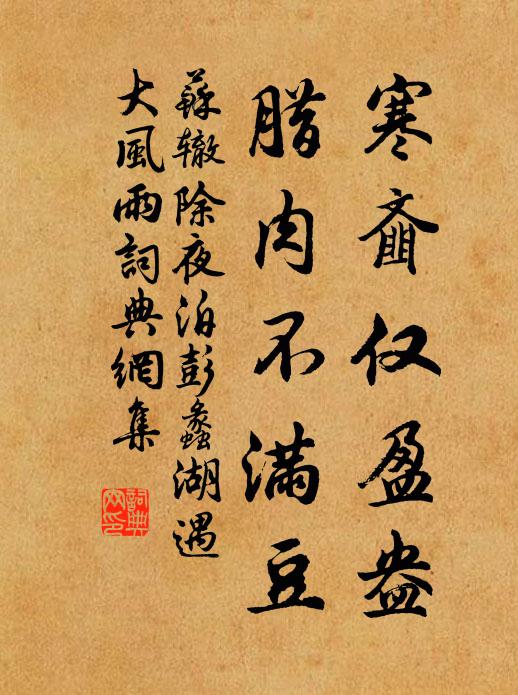 寒齑仅盈盎
腊肉不满豆
蘇辙除夜泊彭蠡湖遇
大風雨詞典網集
詞典
网印